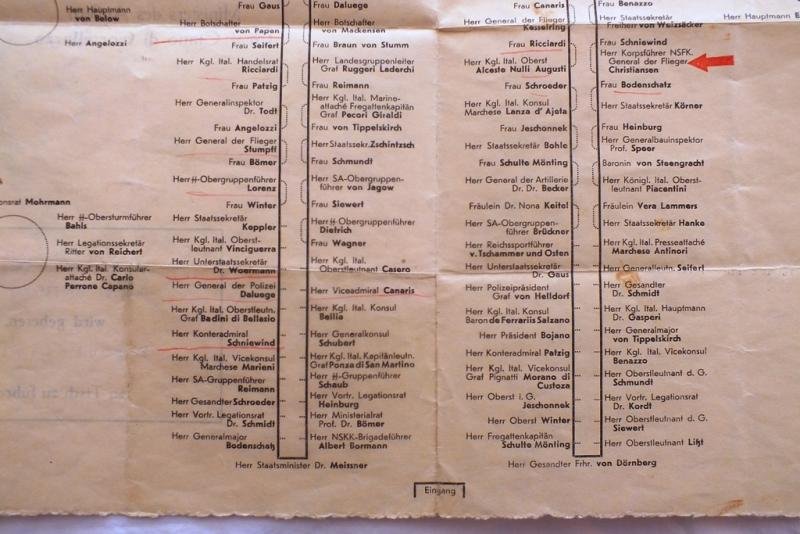 Herr Hauptmann
von Below
Herr Angelozzi
Mohrmann
Herr ᛋᛋ-Obersturmführer
Bahls
Herr Legationssekretär
Ritter von Reichert
Herr Kgl. Ital. Konsular-
attaché Dr. Carlo
Perrone Capano
Frau Gaus
Herr Botschafter
von Papen
Frau Seifert
Herr Kgl. Ital. Handelsrat
Ricciardi
Frau Patzig
Herr Generalinspektor
Dr. Todt
Frau Angelozzi
Herr General der Flieger
Stumpff
Frau Bömer
Herr ᛋᛋ-Obergruppenführer
Lorenz
Frau Winter
Herr Staatssekretär
Keppler
Herr Kgl. Ital. Oberst-
leutnant Vinciguerra
Herr Unterstaatssekretär
Dr. Woermann
Herr General der Polizei
Daluege
Herr Kgl. Ital. Oberstleutn.
Graf Badini di Bellasio
Herr Konteradmiral
Schniewind
Herr Kgl. Ital. Vicekonsul
Marchese Marieni
Herr SA-Gruppenführer
Reimann
Herr Gesandter Schroeder
Herr Vortr. Legationsrat
Dr. Schmidt
Herr Generalmajor
Bodenschatz
Frau Daluege
Herr Botschafter
von Mackensen
Frau Braun von Stumm
Herr Landesgruppenleiter
Graf Ruggeri Laderchi
Frau Reimann
Herr Kgl. Ital. Marine-
attaché Fregattenkapitän
Graf Pecori Giraldi
Frau von Tippelskirch
Herr Staatssekr. Zschintzsch
Frau Schmundt
Herr SA-Obergruppen-
führer von Jagow
Frau Siewert
Herr ᛋᛋ-Obergruppenführer
Dietrich
Frau Wagner
Herr Kgl. Ital.
Oberstleutnant Casero
Herr Viceadmiral Canaris
Herr Kgl. Ital. Konsul
Bellia
Herr Generalkonsul
Schubert
Herr Kgl. Ital. Kapitänleutn.
Graf Ponza di San Martino
Herr ᛋᛋ-Gruppenführer
Schaub
Herr Vortr. Legationsrat
Heinburg
Herr Ministerialrat
Prof. Dr. Bömer
Herr NSKK-Brigadeführer
Albert Bormann
Herr Staatsminister Dr. Meissner
Frau Canaris
Herr General der Flieger
Kesselring
Frau Ricciardi
Herr Kgl. Ital. Oberst
Alceste Nulli Augusti
Frau Schroeder
Herr Kgl. Ital. Konsul
Marchese Lanza d' Ajeta
Frau Jeschonnek
Herr Staatssekretär Bohle
Frau Schulte Mönting
Herr General der Artillerie
Dr. Dr. Becker
Fräulein Dr. Nona Keitel
Herr SA-Obergruppen-
führer Brückner
Herr Reichssportführer
v. Tschammer und Osten
Herr Unterstaatssekretär
Dr. Gaus
Herr Polizeipräsident
Graf von Helldorf
Herr Kgl. Ital. Konsul
Baron de Ferrariis Salzano
Herr Präsident Bojano
Herr Konteradmiral Patzig
Herr Kgl. Ital. Vicekonsul
Graf Pignatti Morano di
Custoza
Herr Oberst i. G.
Jeschonnek
Herr Oberst Winter
Herr Fregattenkapitän
Schulte Mönting
Frau Benazzo
Herr Staatssekretär
Freiherr von Weizsäcker
Frau Schniewind
Herr Korpsführer NSFK.
General der Flieger
Christiansen
Frau Bodenschatz
Herr Staatssekretär Körner
Frau Heinburg
Herr Generalbauinspektor
Prof. Speer
Baronin von Steengracht
Herr Königl. Ital. Oberst-
leutnant Piacentini
Fräulein Vera Lammers
Herr Staatssekretär Hanke
Herr Kgl. Ital. Presseattaché
Marchese Antinori
Herr Generalleutn. Seifert
Herr Gesandter
Dr. Schmidt
Herr Kgl. Ital. Hauptmann
Dr. Gasperi
Herr Generalmajor
von Tippelskirch
Herr Kgl. Ital. Vicekonsul
Benazzo
Herr Oberstleutnant d. G.
Schmundt
Herr Vortr. Legationsrat
Dr. Kordt
Herr Oberstleutnant d. G.
Siewert
Herr Oberstleutnant Lißt
Herr Gesandter Frhr. von Dörnberg
Herr Hauptmann
Eingang